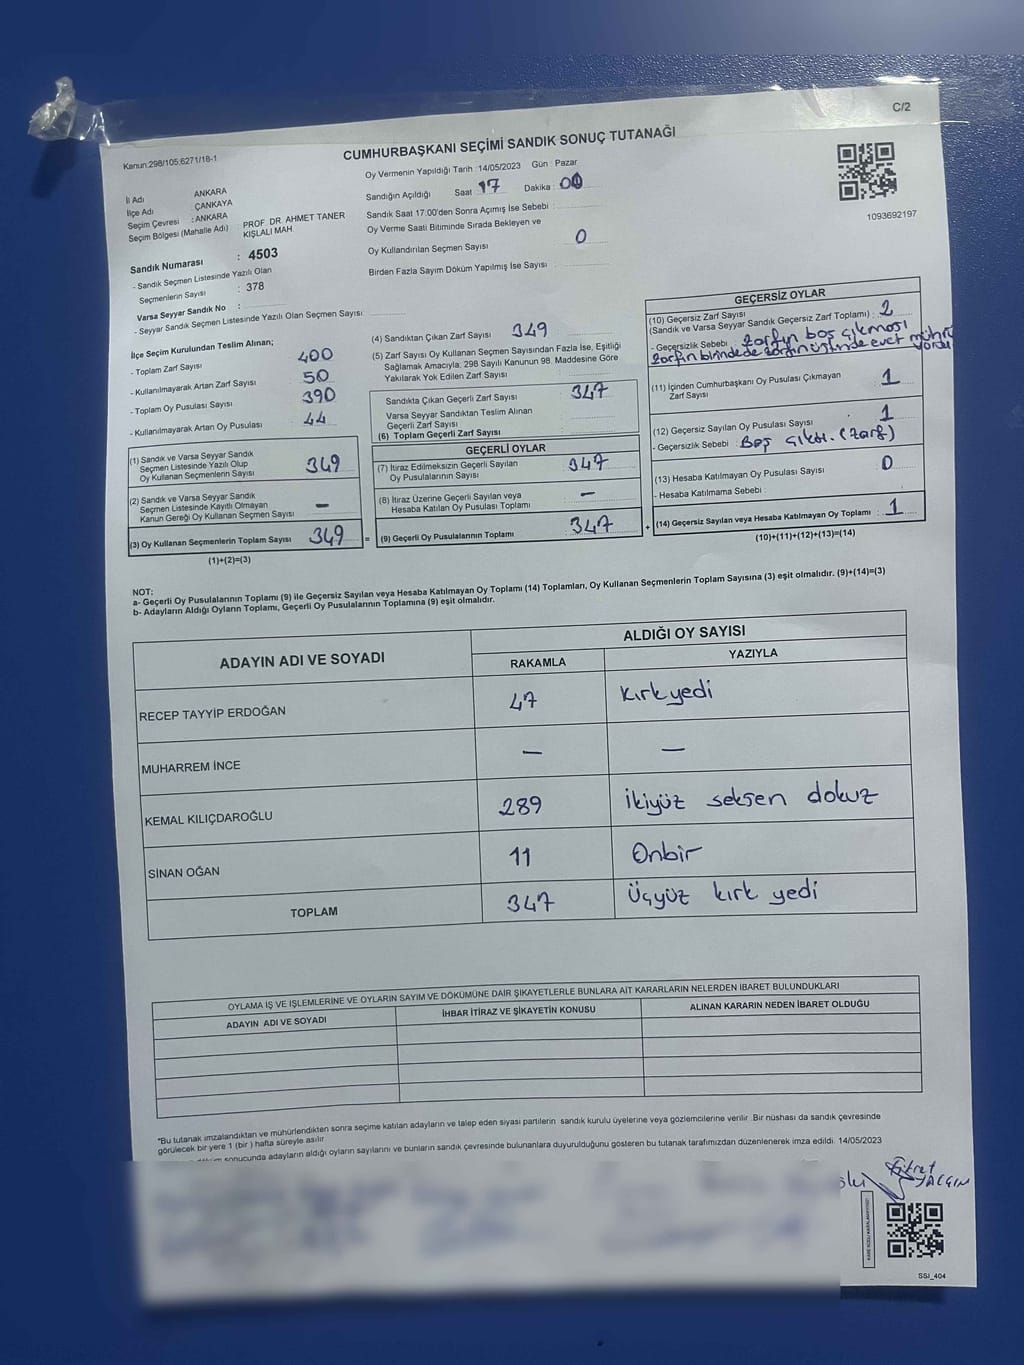 C/2
Kanun:298/105:6271/18-1
CUMHURBAŞKANI SEÇİMİ SANDIK SONUÇ TUTANAĞI
Oy Vermenin Yapıldığı Tarih :14/05/2023 Gün : Pazar
Sandığın Açıldığı Saat 17 Dakika : 00
Sandık Saat 17:00'den Sonra Açımış İse Sebebi :
Oy Verme Saati Bitiminde Sırada Bekleyen ve
Oy Kullandırılan Seçmen Sayısı 0
Birden Fazla Sayım Döküm Yapılmış İse Sayısı :
1093692197
İl Adı ANKARA
İlçe Adı ÇANKAYA
Seçim Çevresi : ANKARA
Seçim Bölgesi (Mahalle Adı) PROF. DR. AHMET TANER
KIŞLALI MAH.
Sandık Numarası : 4503
- Sandık Seçmen Listesinde Yazılı Olan
Seçmenlerin Sayısı : 378
Varsa Seyyar Sandık No :
- Seyyar Sandık Seçmen Listesinde Yazılı Olan Seçmen Sayısı:
İlçe Seçim Kurulundan Teslim Alınan;
- Toplam Zarf Sayısı 400
- Kullanılmayarak Artan Zarf Sayısı 50
- Toplam Oy Pusulası Sayısı 390
- Kullanılmayarak Artan Oy Pusulası 44
(1) Sandık ve Varsa Seyyar Sandık
Seçmen Listesinde Yazılı Olup
Oy Kullanan Seçmenlerin Sayısı 349
(2) Sandık ve Varsa Seyyar Sandık
Seçmen Listesinde Kayıtlı Olmayan
Kanun Gereği Oy Kullanan Seçmen Sayısı : —
(3) Oy Kullanan Seçmenlerin Toplam Sayısı 349
(1)+(2)=(3)
(4) Sandıktan Çıkan Zarf Sayısı : 349
(5) Zarf Sayısı Oy Kullanan Seçmen Sayısından Fazla İse, Eşitliği
Sağlamak Amacıyla; 298 Sayılı Kanunun 98. Maddesine Göre
Yakılarak Yok Edilen Zarf Sayısı :
Sandıkta Çıkan Geçerli Zarf Sayısı : 347
Varsa Seyyar Sandıktan Teslim Alınan
Geçerli Zarf Sayısı :
(6) Toplam Geçerli Zarf Sayısı
GEÇERLİ OYLAR
(7) İtiraz Edilmeksizin Geçerli Sayılan
Oy Pusulalarının Sayısı : 347
(8) İtiraz Üzerine Geçerli Sayılan veya
Hesaba Katılan Oy Pusulası Toplamı : —
= (9) Geçerli Oy Pusulalarının Toplamı : 347 +
GEÇERSİZ OYLAR
(10) Geçersiz Zarf Sayısı
(Sandık ve Varsa Seyyar Sandık Geçersiz Zarf Toplamı) : 2
- Geçersizlik Sebebi : Zarfın boş çıkması
zarfın birinde de zarfın üstünde evet mührü
(11) İçinden Cumhurbaşkanı Oy Pusulası Çıkmayan
Zarf Sayısı : 1
(12) Geçersiz Sayılan Oy Pusulası Sayısı : 1
- Geçersizlik Sebebi : Boş çıktı. (Zarf)
(13) Hesaba Katılmayan Oy Pusulası Sayısı : 0
- Hesaba Katılmama Sebebi :
(14) Geçersiz Sayılan veya Hesaba Katılmayan Oy Toplamı : 1
(10)+(11)+(12)+(13)=(14)
NOT:
a- Geçerli Oy Pusulalarının Toplamı (9) ile Geçersiz Sayılan veya Hesaba Katılmayan Oy Toplamı (14) Toplamları, Oy Kullanan Seçmenlerin Toplam Sayısına (3) eşit olmalıdır. (9)+(14)=(3)
b- Adayların Aldığı Oyların Toplamı, Geçerli Oy Pusulalarının Toplamına (9) eşit olmalıdır.
ADAYIN ADI VE SOYADI ALDIĞI OY SAYISI
RAKAMLA YAZIYLA
RECEP TAYYİP ERDOĞAN 47 Kırkyedi
MUHARREM İNCE — —
KEMAL KILIÇDAROĞLU 289 İkiyüz seksen dokuz
SİNAN OĞAN 11 Onbir
TOPLAM 347 Üçyüz kırk yedi
OYLAMA İŞ VE İŞLEMLERİNE VE OYLARIN SAYIM VE DÖKÜMÜNE DAİR ŞİKAYETLERLE BUNLARA AİT KARARLARIN NELERDEN İBARET BULUNDUKLARI
ADAYIN ADI VE SOYADI İHBAR İTİRAZ VE ŞİKAYETİN KONUSU ALINAN KARARIN NEDEN İBARET OLDUĞU
*Bu tutanak imzalandıktan ve mühürlendikten sonra seçime katılan adayların ve talep eden siyasi partilerin sandık kurulu üyelerine veya gözlemcilerine verilir. Bir nüshası da sandık çevresinde
görülecek bir yere 1 (bir) hafta süreyle asılır.
sonucunda adayların aldığı oyların sayılarını ve bunların sandık çevresinde bulunanlara duyurulduğunu gösteren bu tutanak tarafımızdan düzenlenerek imza edildi. 14/05/2023
Fikret
YALÇIN
SSİ_404